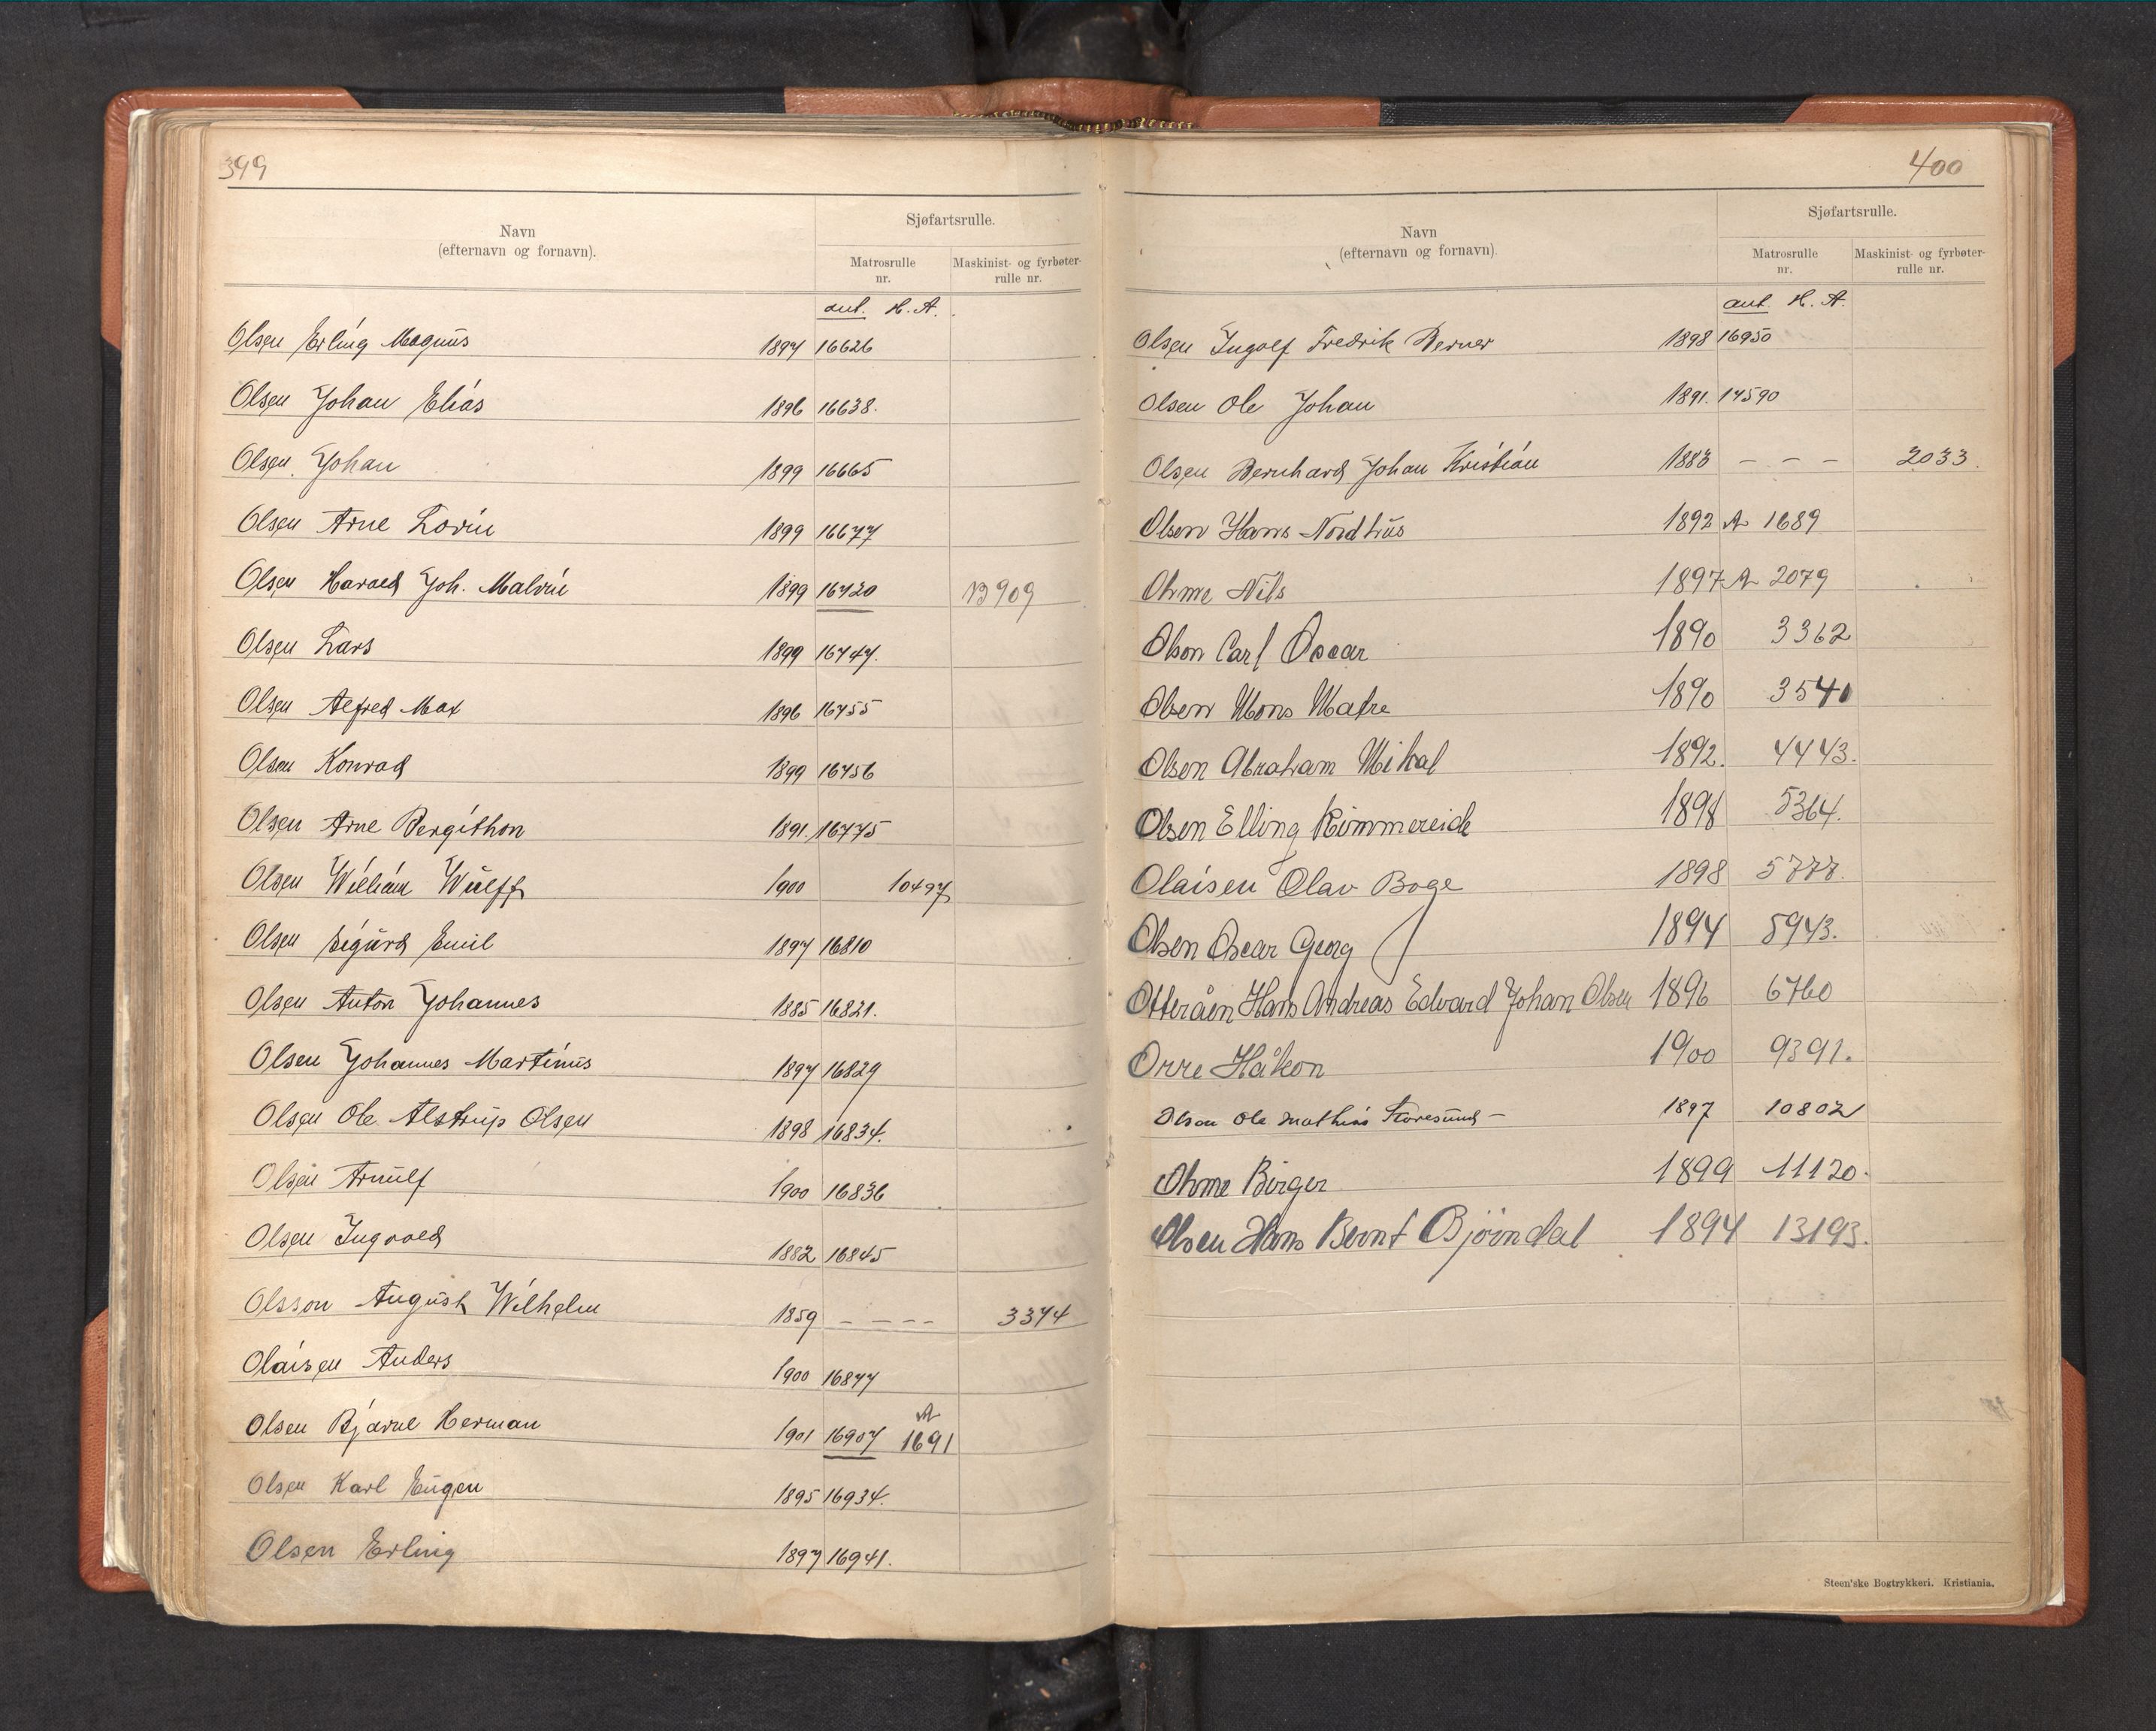 399
Sjøfartsrulle.
Navn
(efternavn og fornavn).
Matrosrulle
nr.
Maskinist- og fyrbøter-
rulle nr.
ant. H. A.
Olsen Erling Magnus 1897 16626
Olsen Johan Elias 1896 16638.
Olsen Johan 1899 16665
Olsen Arne Lovin 1899 16677
Olsen Harald Joh. Malvin 1899 16720 B 909
Olsen Lars 1899 16747.
Olsen Alfred Max 1896 16755
Olsen Konrad 1899 16756
Olsen Arne Bergithon 1891. 16775
Olsen William Wulff 1900 10497
Olsen Sigurd Emil 1897 16810
Olsen Anton Johannes 1885 16821.
Olsen Johannes Martinus 1897 16829
Olsen Ole Alstrup Olsen 1898 16834.
Olsen Arnulf 1900 16836
Olsen Ingvald 1882 16845
Olsson August Wilhelm 1859 – – – – 3374
Olaisen Anders 1900 16877
Olsen Bjarne Herman 1901 16907 A 1691
Olsen Karl Eugen 1895 16934.
Olsen Erling 1897 16941.
400
Sjøfartsrulle.
Navn
(efternavn og fornavn)
Matrosrulle
nr.
Maskinist- og fyrbøter-
rulle nr.
ant. H. A.
Olsen Ingolf Fredrik Berner 1898 16950
Olsen Ole Johan 1891. 17590
Olsen Bernhard Johan Kristian 1883 – – – 2033.
Olsen Hans Nordhus 1892 A 1689
Ohme Nils 1897 A 2079
Olson Carl Oscar 1890 3362
Olsen Mons Matre 1890 3540
Olsen Abraham Mikal 1892. 4443.
Olsen Elling Rimmereide 1898 5364.
Olaisen Olav Boge 1898 5777.
Olsen Oscar Georg 1894 5943.
Otteråen Hans Andreas Edvard Johan Olsen 1896 6760
Orre Håkon 1900 9391.
Olsen Ole Mathias Storesund – 1897 10802
Ohme Birger 1899 11120.
Olsen Hans Bernt Bjørndal 1894 13193.
Steen'ske Bogtrykkeri. Kristiania.